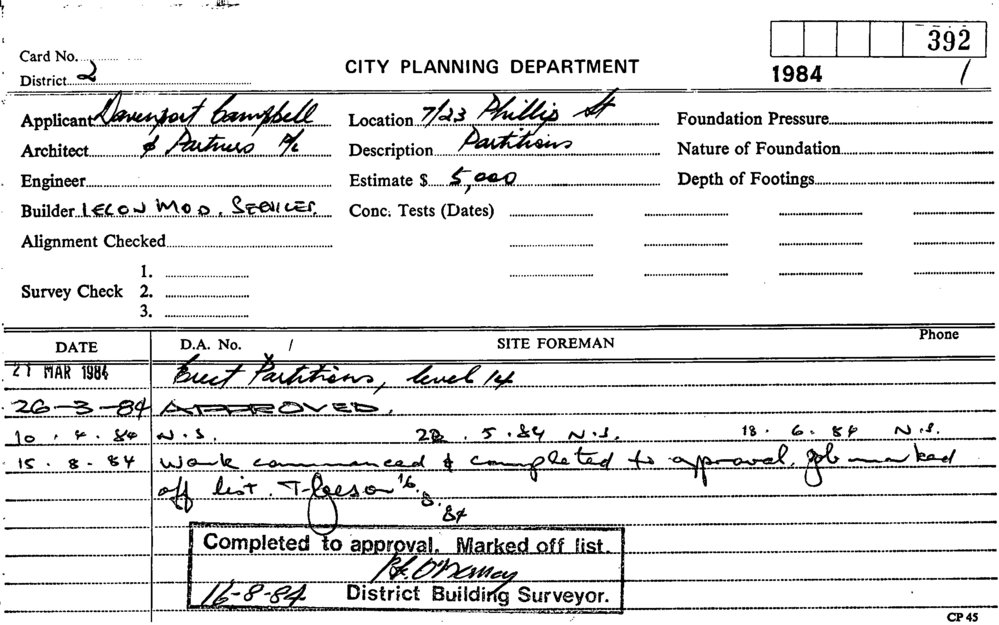 392
Card No.
District 2
CITY PLANNING DEPARTMENT
1984 /
Applicant Davenport Campbell
Location 7/23 Phillip St
Foundation Pressure
Architect & Partners P/L
Description Partitions
Nature of Foundation
Engineer
Estimate $ 5,000
Depth of Footings
Builder LECON MOD. SERVICES.
Conc. Tests (Dates)
Alignment Checked
1.
Survey Check 2.
3.
Phone
DATE D.A. No. / SITE FOREMAN
21 MAR 1984 Erect Partitions, level 14
26-3-84 APPROVED.
10.4.84 N.S. 28.5.84 N.S. 18.6.84 N.S.
15.8.84 Work commenced & completed to approval. Job marked
off list. 16.8.84
Completed to approval. Marked off list.
16-8-84 District Building Surveyor.
CP 45